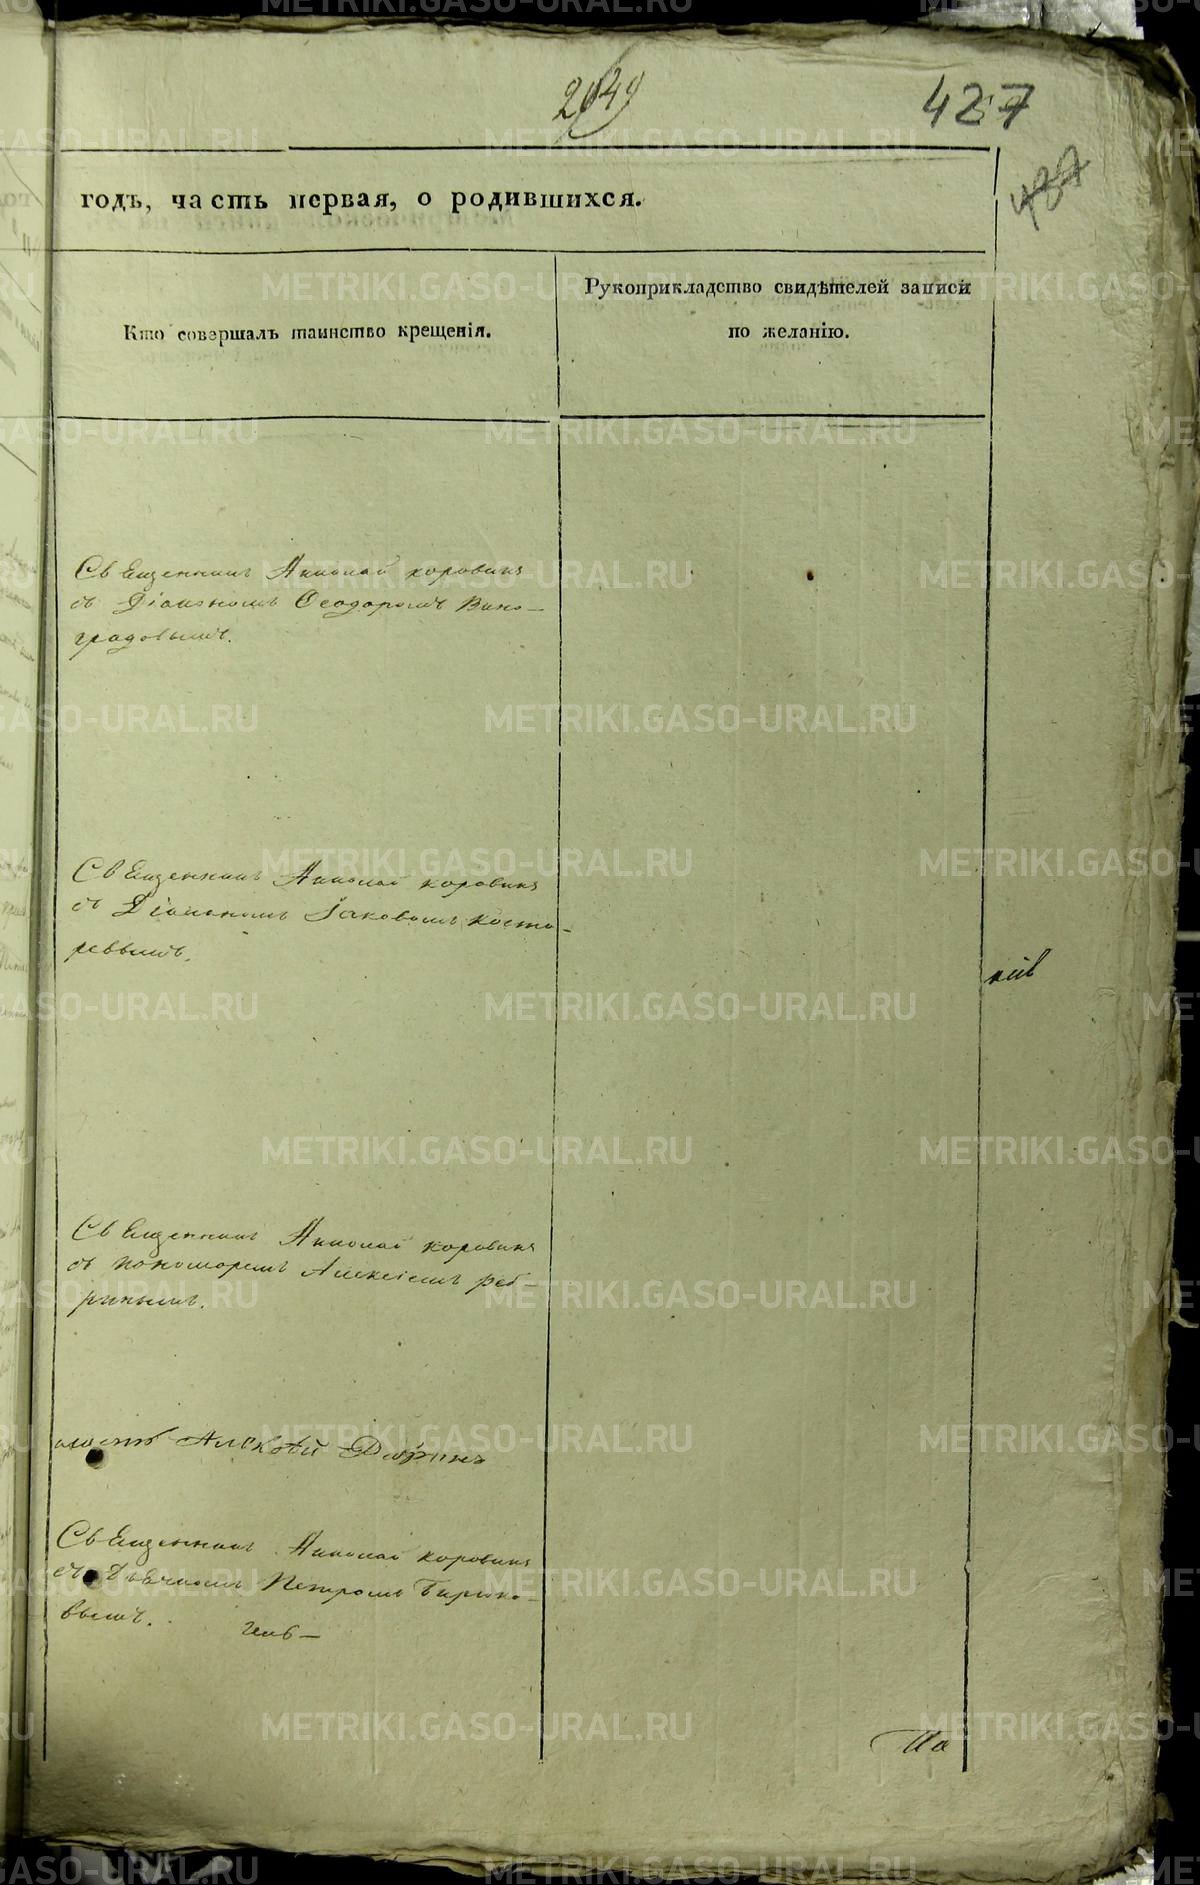 2049
427
437
годъ, часть первая, о родившихся.
Кто совершалъ таинство крещенія.
Рукоприкладство свидѣтелей записи
по желанію.
Священникъ Николай Коровинъ
съ Діакономъ Ѳеодоромъ Вино-
градовымъ.
Священникъ Николай Коровинъ
съ Діакономъ Іаковомъ Косто-
ревымъ.
Священникъ Николай Коровинъ
съ пономоремъ Алексіемъ реб-
ринымъ.
Алексѣй
Священникъ Николай Коровинъ
съ Дьячкомъ Петромъ Бирюко-
вымъ.
По
METRIKI.GASO-URAL.RU